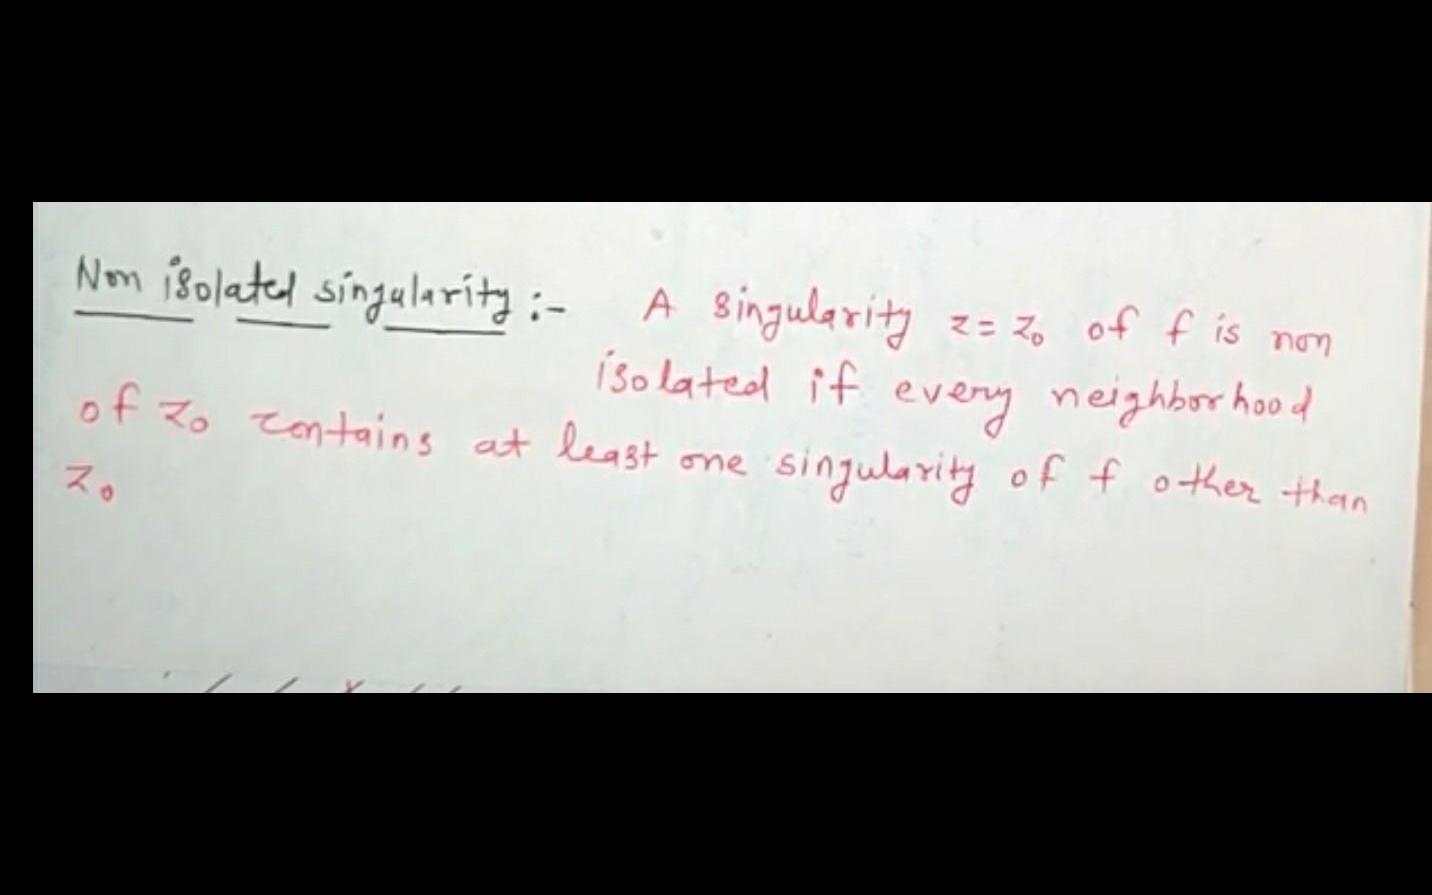 Non isolated singularity :- A singularity z = z₀ of f is non
isolated if every neighborhood
of z₀ contains at least one singularity of f other than
z₀